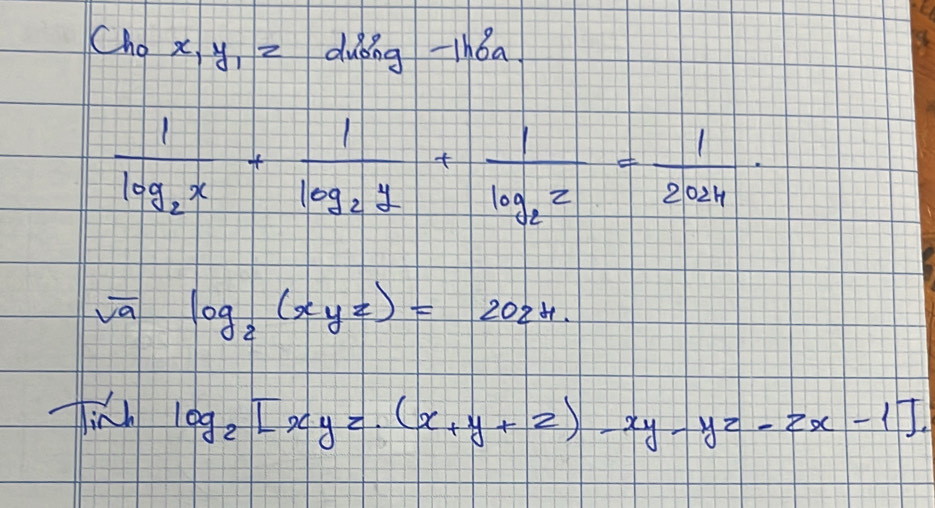 Cho x, y, z dương thỏa.
1/log₂x + 1/log₂y + 1/log₂z = 1/2024.
và log₂(xyz) = 2024.
Tính log₂[xyz.(x+y+z) - xy - yz - zx - 1].